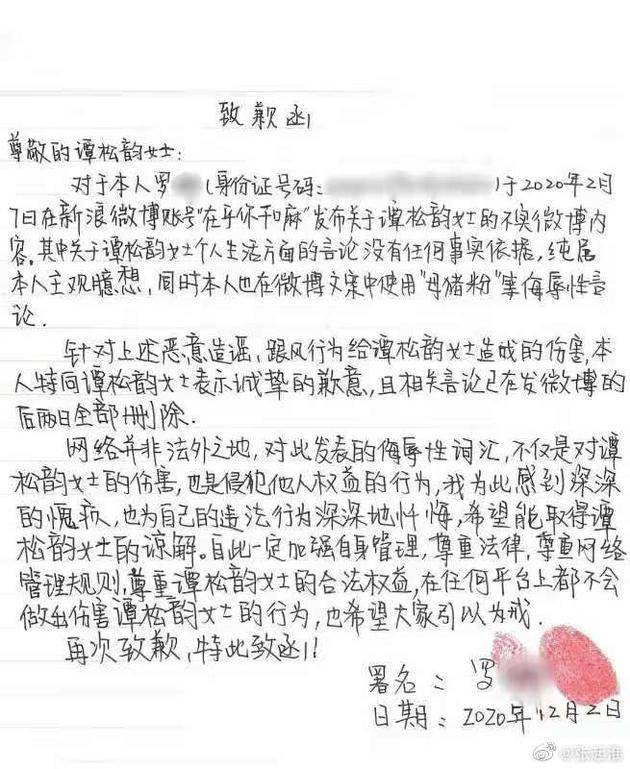 致歉函
尊敬的谭松韵女士:
对于本人罗 (身份证号码: )于2020年2月
7日在新浪微博账号"在乎你和麻"发布关于谭松韵女士的不实微博内
容。其中关于谭松韵女士个人生活方面的言论没有任何事实依据,纯属
本人主观臆想,同时本人也在微博文案中使用"母猪粉"等侮辱性言
论.
针对上述恶意造谣、跟风行为给谭松韵女士造成的伤害,本
人特向谭松韵女士表示诚挚的歉意,且相关言论已在发微博的
后两日全部删除.
网络并非法外之地,对此发表的侮辱性词汇,不仅是对谭
松韵女士的伤害,也是侵犯他人权益的行为,我为此感到深深
的愧疚,也为自己的违法行为深深地忏悔,希望能取得谭
松韵女士的谅解。自此一定加强自身管理,尊重法律,尊重网络
管理规则,尊重谭松韵女士的合法权益,在任何平台上都不会
做出伤害谭松韵女士的行为,也希望大家引以为戒.
再次致歉,特此致函!
署名: 罗
日期: 2020年12月2日